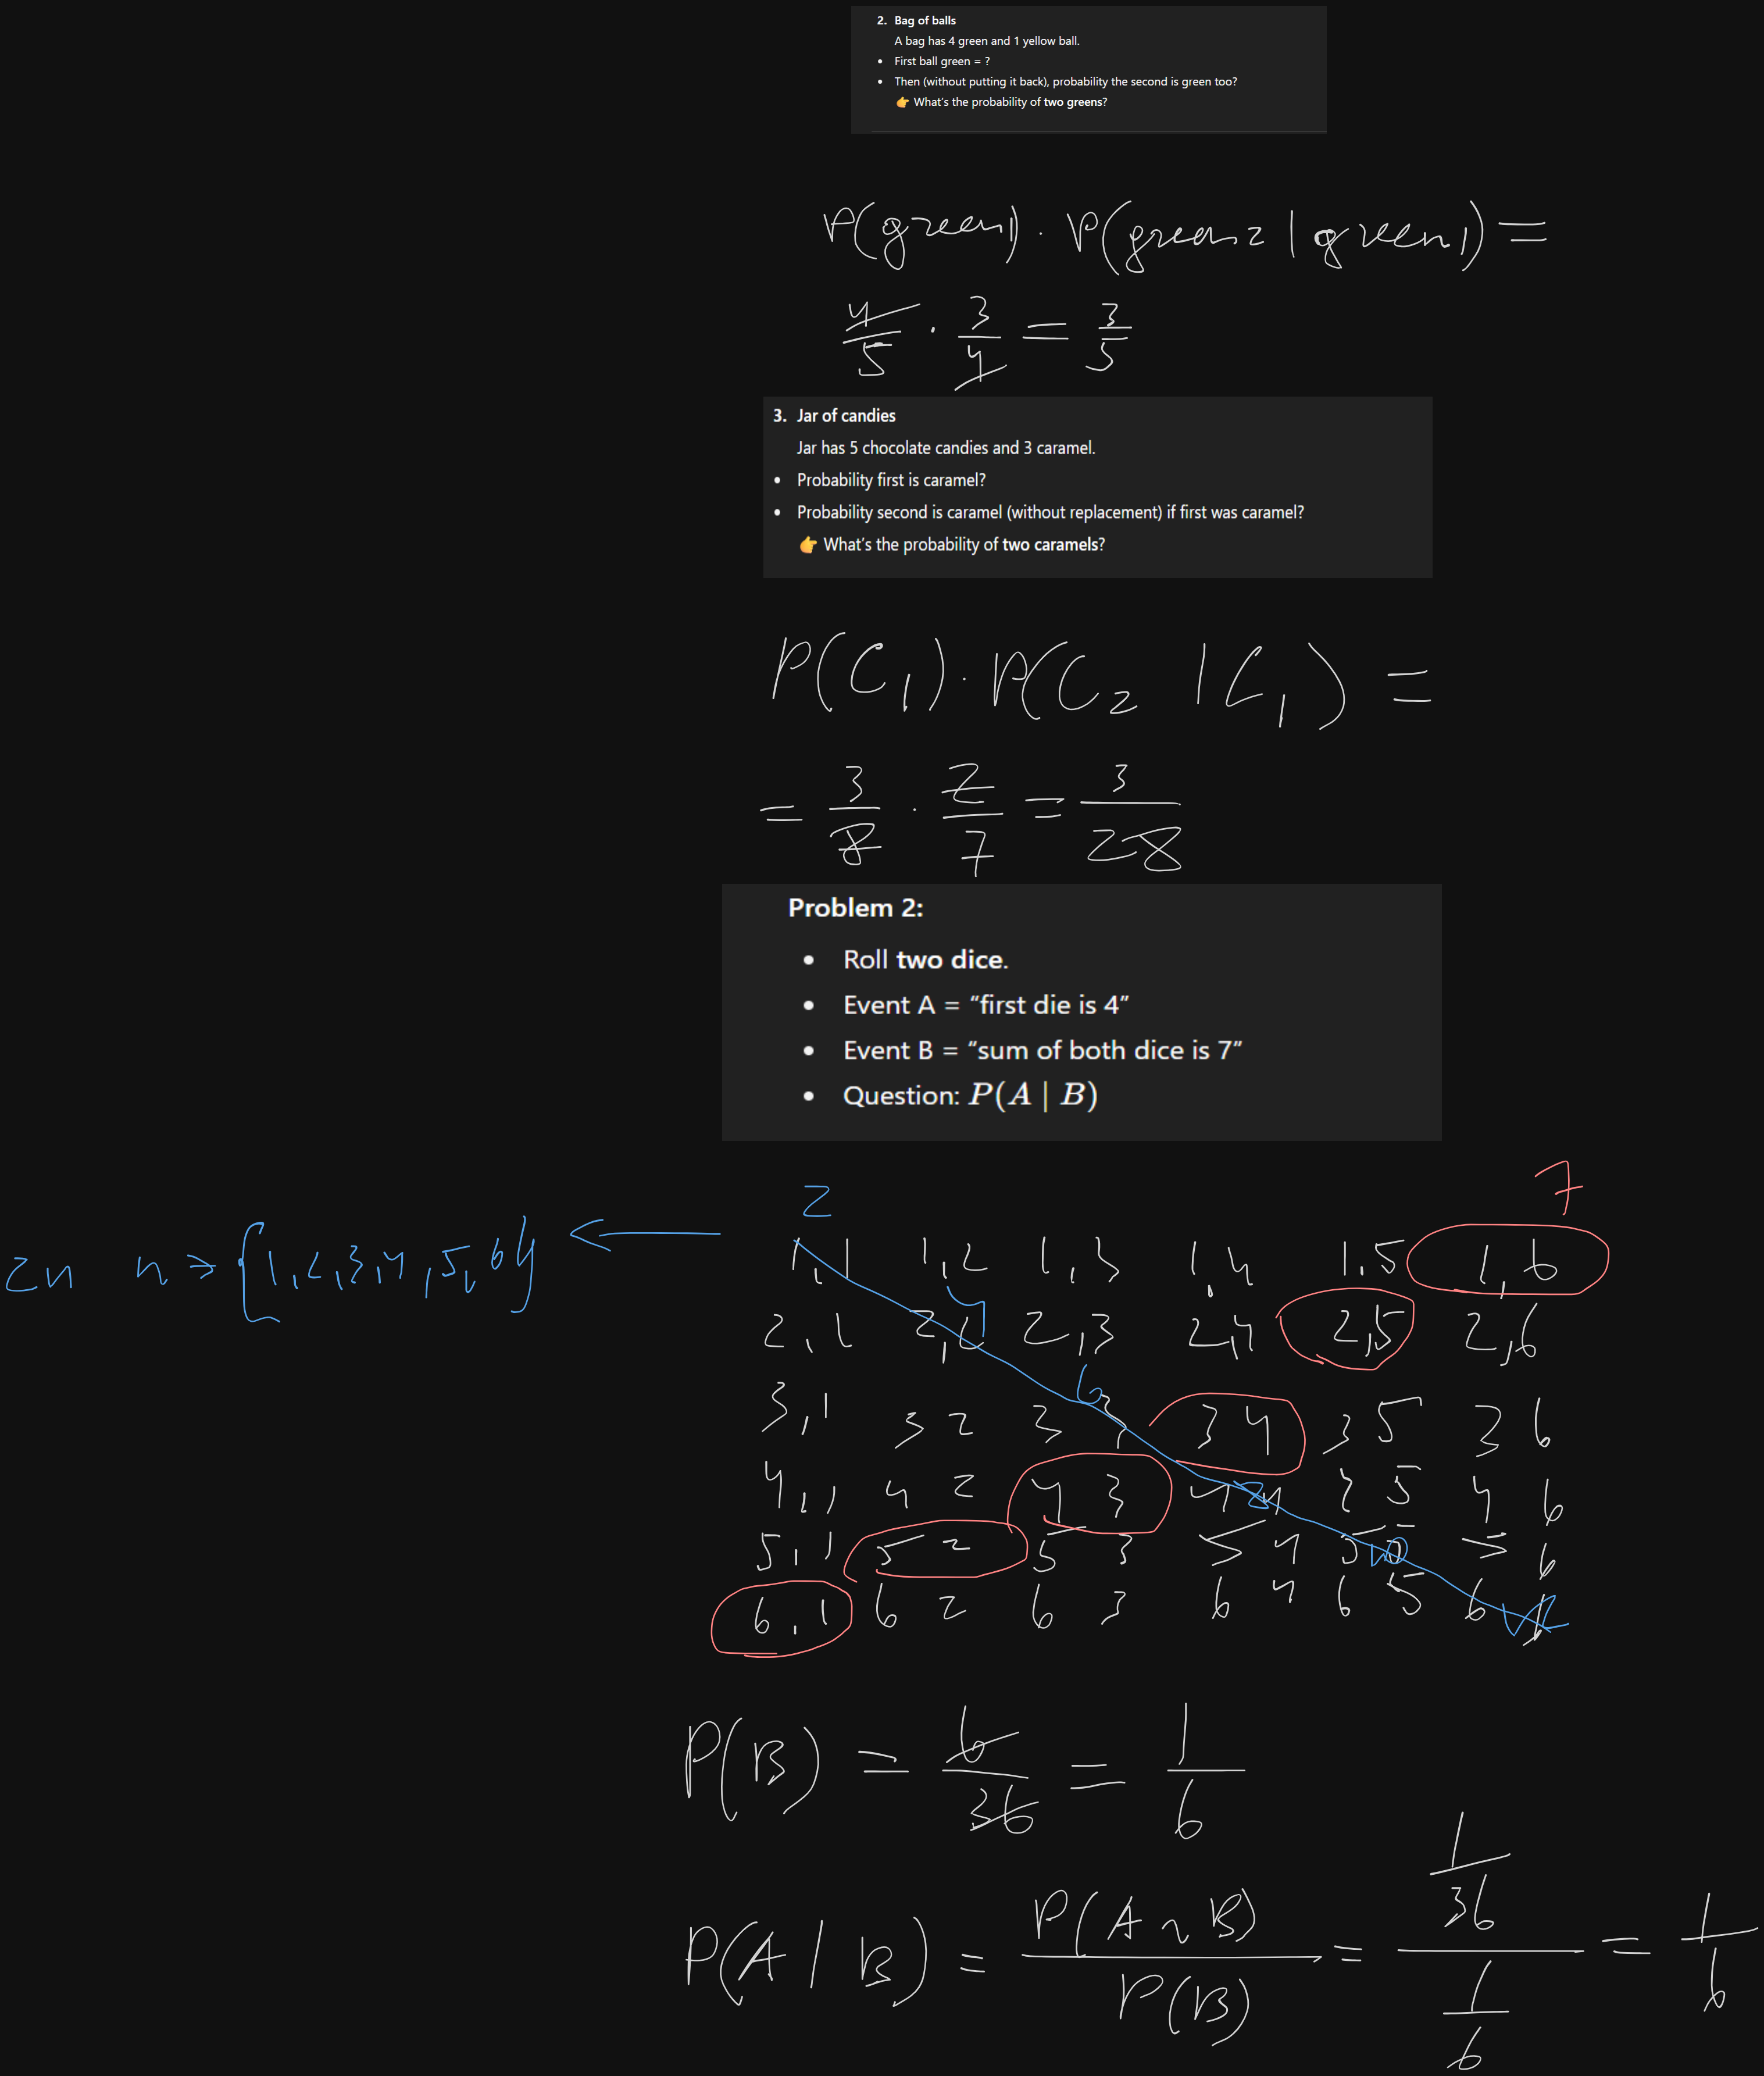 2. Bag of balls
A bag has 4 green and 1 yellow ball.
• First ball green = ?
• Then (without putting it back), probability the second is green too?
👉 What's the probability of two greens?
P(green1) · P(green2 | green1) =
4/5 · 3/4 = 3/5
3. Jar of candies
Jar has 5 chocolate candies and 3 caramel.
• Probability first is caramel?
• Probability second is caramel (without replacement) if first was caramel?
👉 What's the probability of two caramels?
P(C₁) · P(C₂ | C₁) =
= 3/8 · 2/7 = 3/28
Problem 2:
• Roll two dice.
• Event A = “first die is 4”
• Event B = “sum of both dice is 7”
• Question: P(A | B)
2 7
2n n → {1,2,3,4,5,6} ← 1,1 1,2 1,3 1,4 1,5 1,6
4
2,1 2,2 2,3 2,4 2,5 2,6
6
3,1 3 2 3 3 3 4 3 5 3 6
4,1 4 2 4 3 4 4 4 5 4 6
5,1 5 2 5 3 5 4 5 5 5 6
6,1 6 2 6 3 6 4 6 5 6
P(B) = 6/36 = 1/6
P(A | B) = P(A ∩ B)/P(B) = 1/36 / 1/6 = 1/6